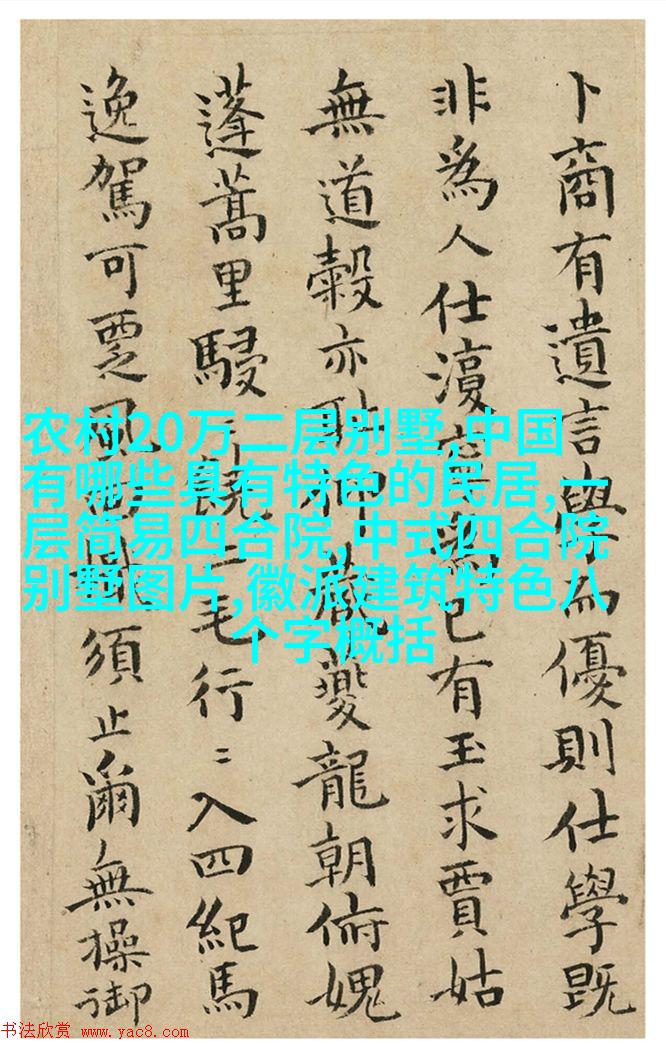 卜商有遺言學而優則仕學既
非為人仕 已有玉求賈姑
無道穀亦恥仰 夔龍朝俯媿
蓬蒿里駸 二毛行〻入四紀馬
逸駕可覂風 須止爾無操御
农村20万二层别墅,中国
有哪些具有特色的民居,一
层简易四合院,中式四合院
别墅图片,徽派建筑特色八
个字概括
书法欣赏 www.yac8.com